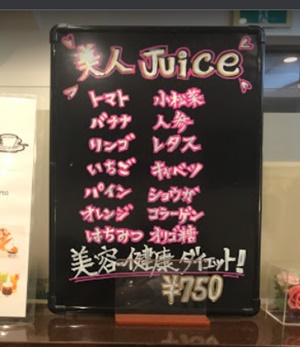 美人 Juice
トマト 小松菜
バナナ 人参
リンゴ レタス
いちご キャベツ
パイン ショウガ
オレンジ コラーゲン
はちみつ オリゴ糖
美容〜健康・ダイエット!!
¥750